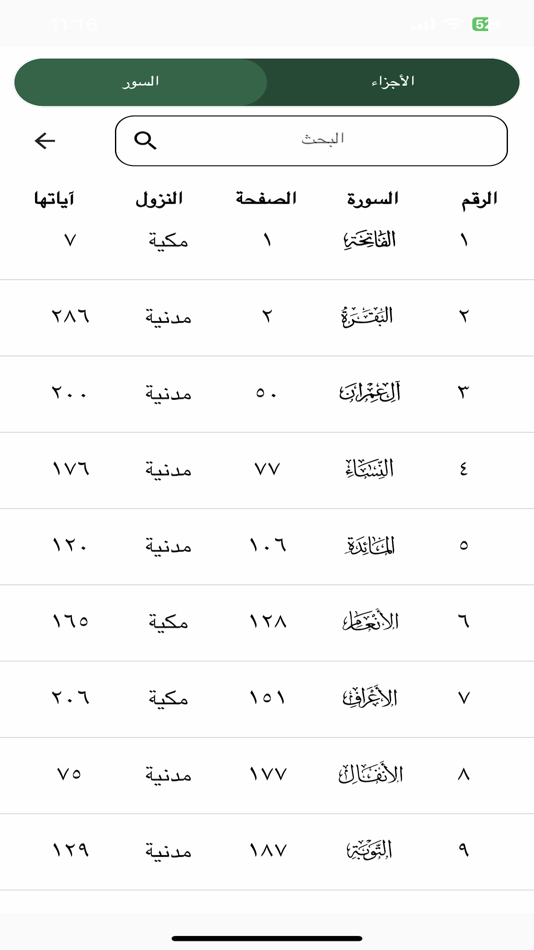 11:16 52
الأجزاء السور
البحث
الرقم السورة الصفحة النزول آياتها
١ الفَاتِحَة ١ مكية ٧
٢ البَقَرَة ٢ مدنية ٢٨٦
٣ آل عِمْرَان ٥٠ مدنية ٢٠٠
٤ النِّسَاء ٧٧ مدنية ١٧٦
٥ المَائدة ١٠٦ مدنية ١٢٠
٦ الأَنْعَام ١٢٨ مكية ١٦٥
٧ الأَعْرَاف ١٥١ مكية ٢٠٦
٨ الأَنفَال ١٧٧ مدنية ٧٥
٩ التَّوْبَة ١٨٧ مدنية ١٢٩